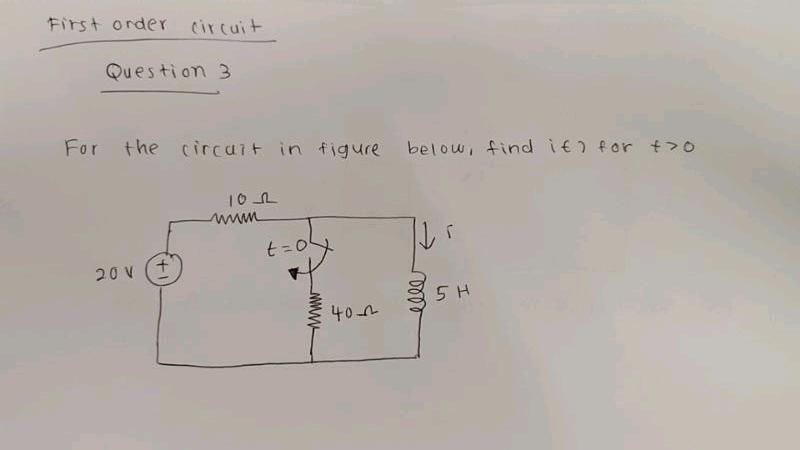 First order circuit
Question 3
For the circuit in figure below, find i(t) for t>0
10 Ω
t=0
i
20 V
+
-
5 H
40 Ω